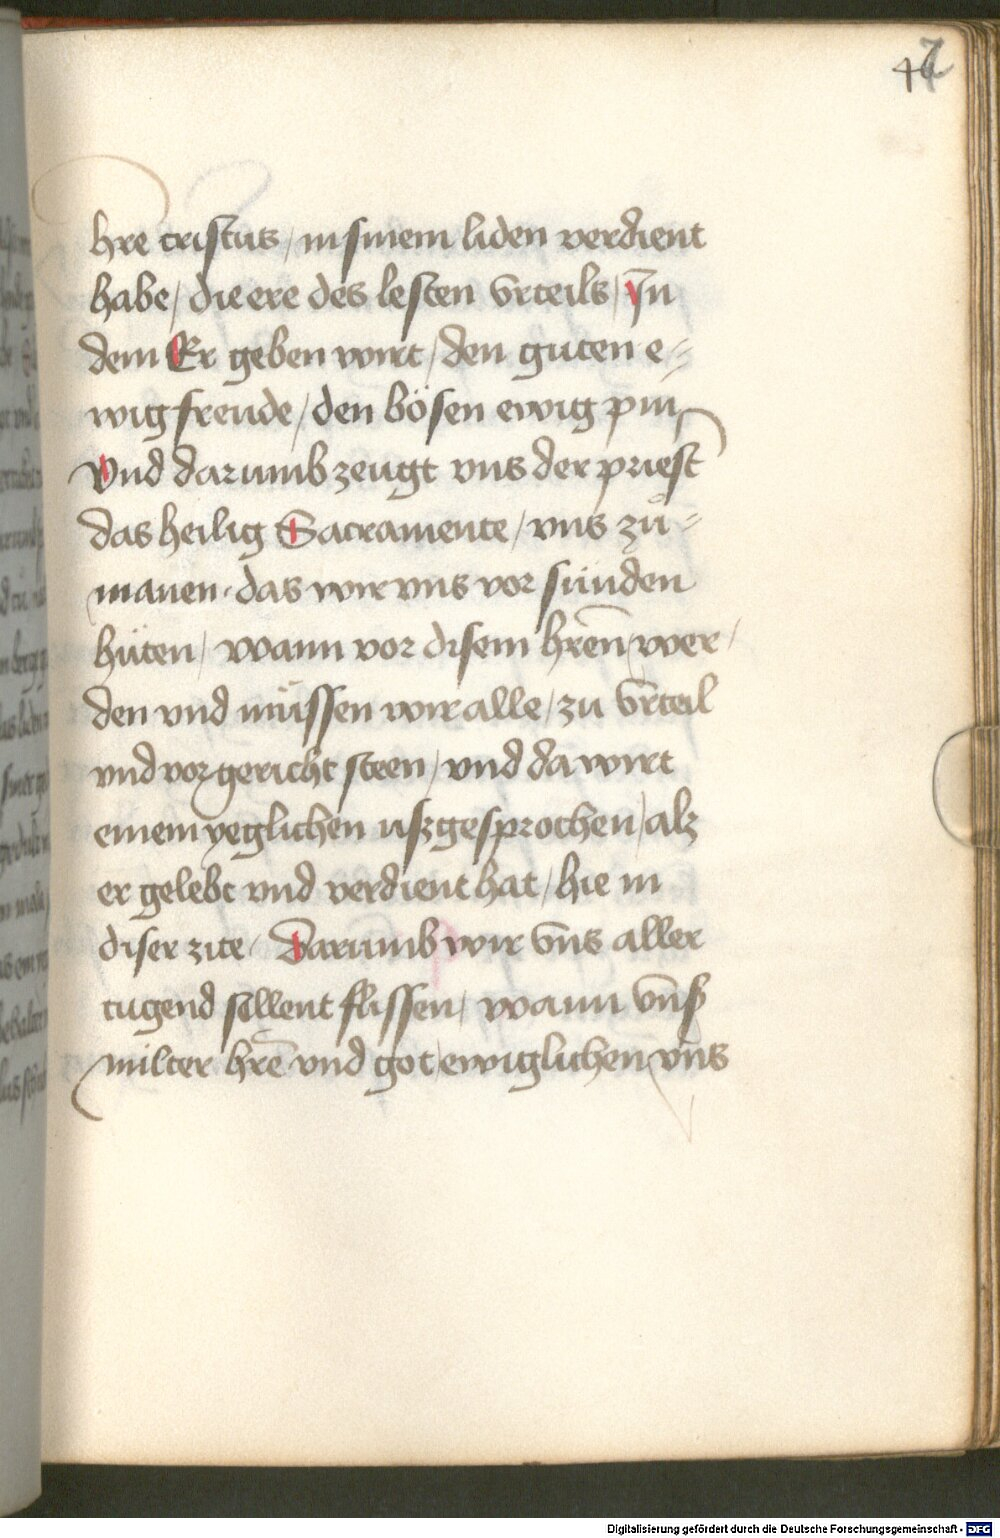 hre cristus / in sinem liden verdient
habe / die ere des lesten vrteils / Jn
dem Er geben wirt / den guten e=
wig freude / den bösen ewig pin
Vnd darumb zeugt vns der priest
das heilig Sacramente / vns zů=
manen · das wir vns vor sünden
hüten / wann vor disem hren̄ wer /
den vnd müssen wir alle / zu vrteil
vnd vor gericht steen / vnd da wirt
einem yeglichen uszgesprochen / alz
er gelebt vnd verdient hat / hie in
diser zite / Darumb wir vn̄s aller
tugend sellent flissen / wann vn̄ß
milter hrē vnd got / ewiglichen vn̄s
Digitalisierung gefördert durch die Deutsche Forschungsgemeinschaft - DFG